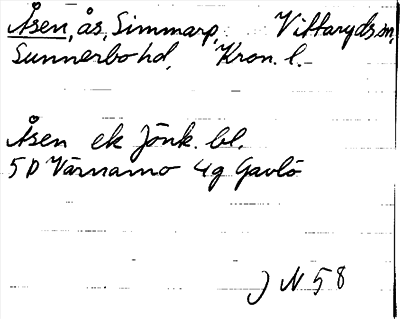 Åsen, ås, Simmarp, Vittaryds sn,
Sunnerbo hd, Kron. l.
Åsen ek Jönk. bl.
5D Värnamo 4g Gavlö
J N 58